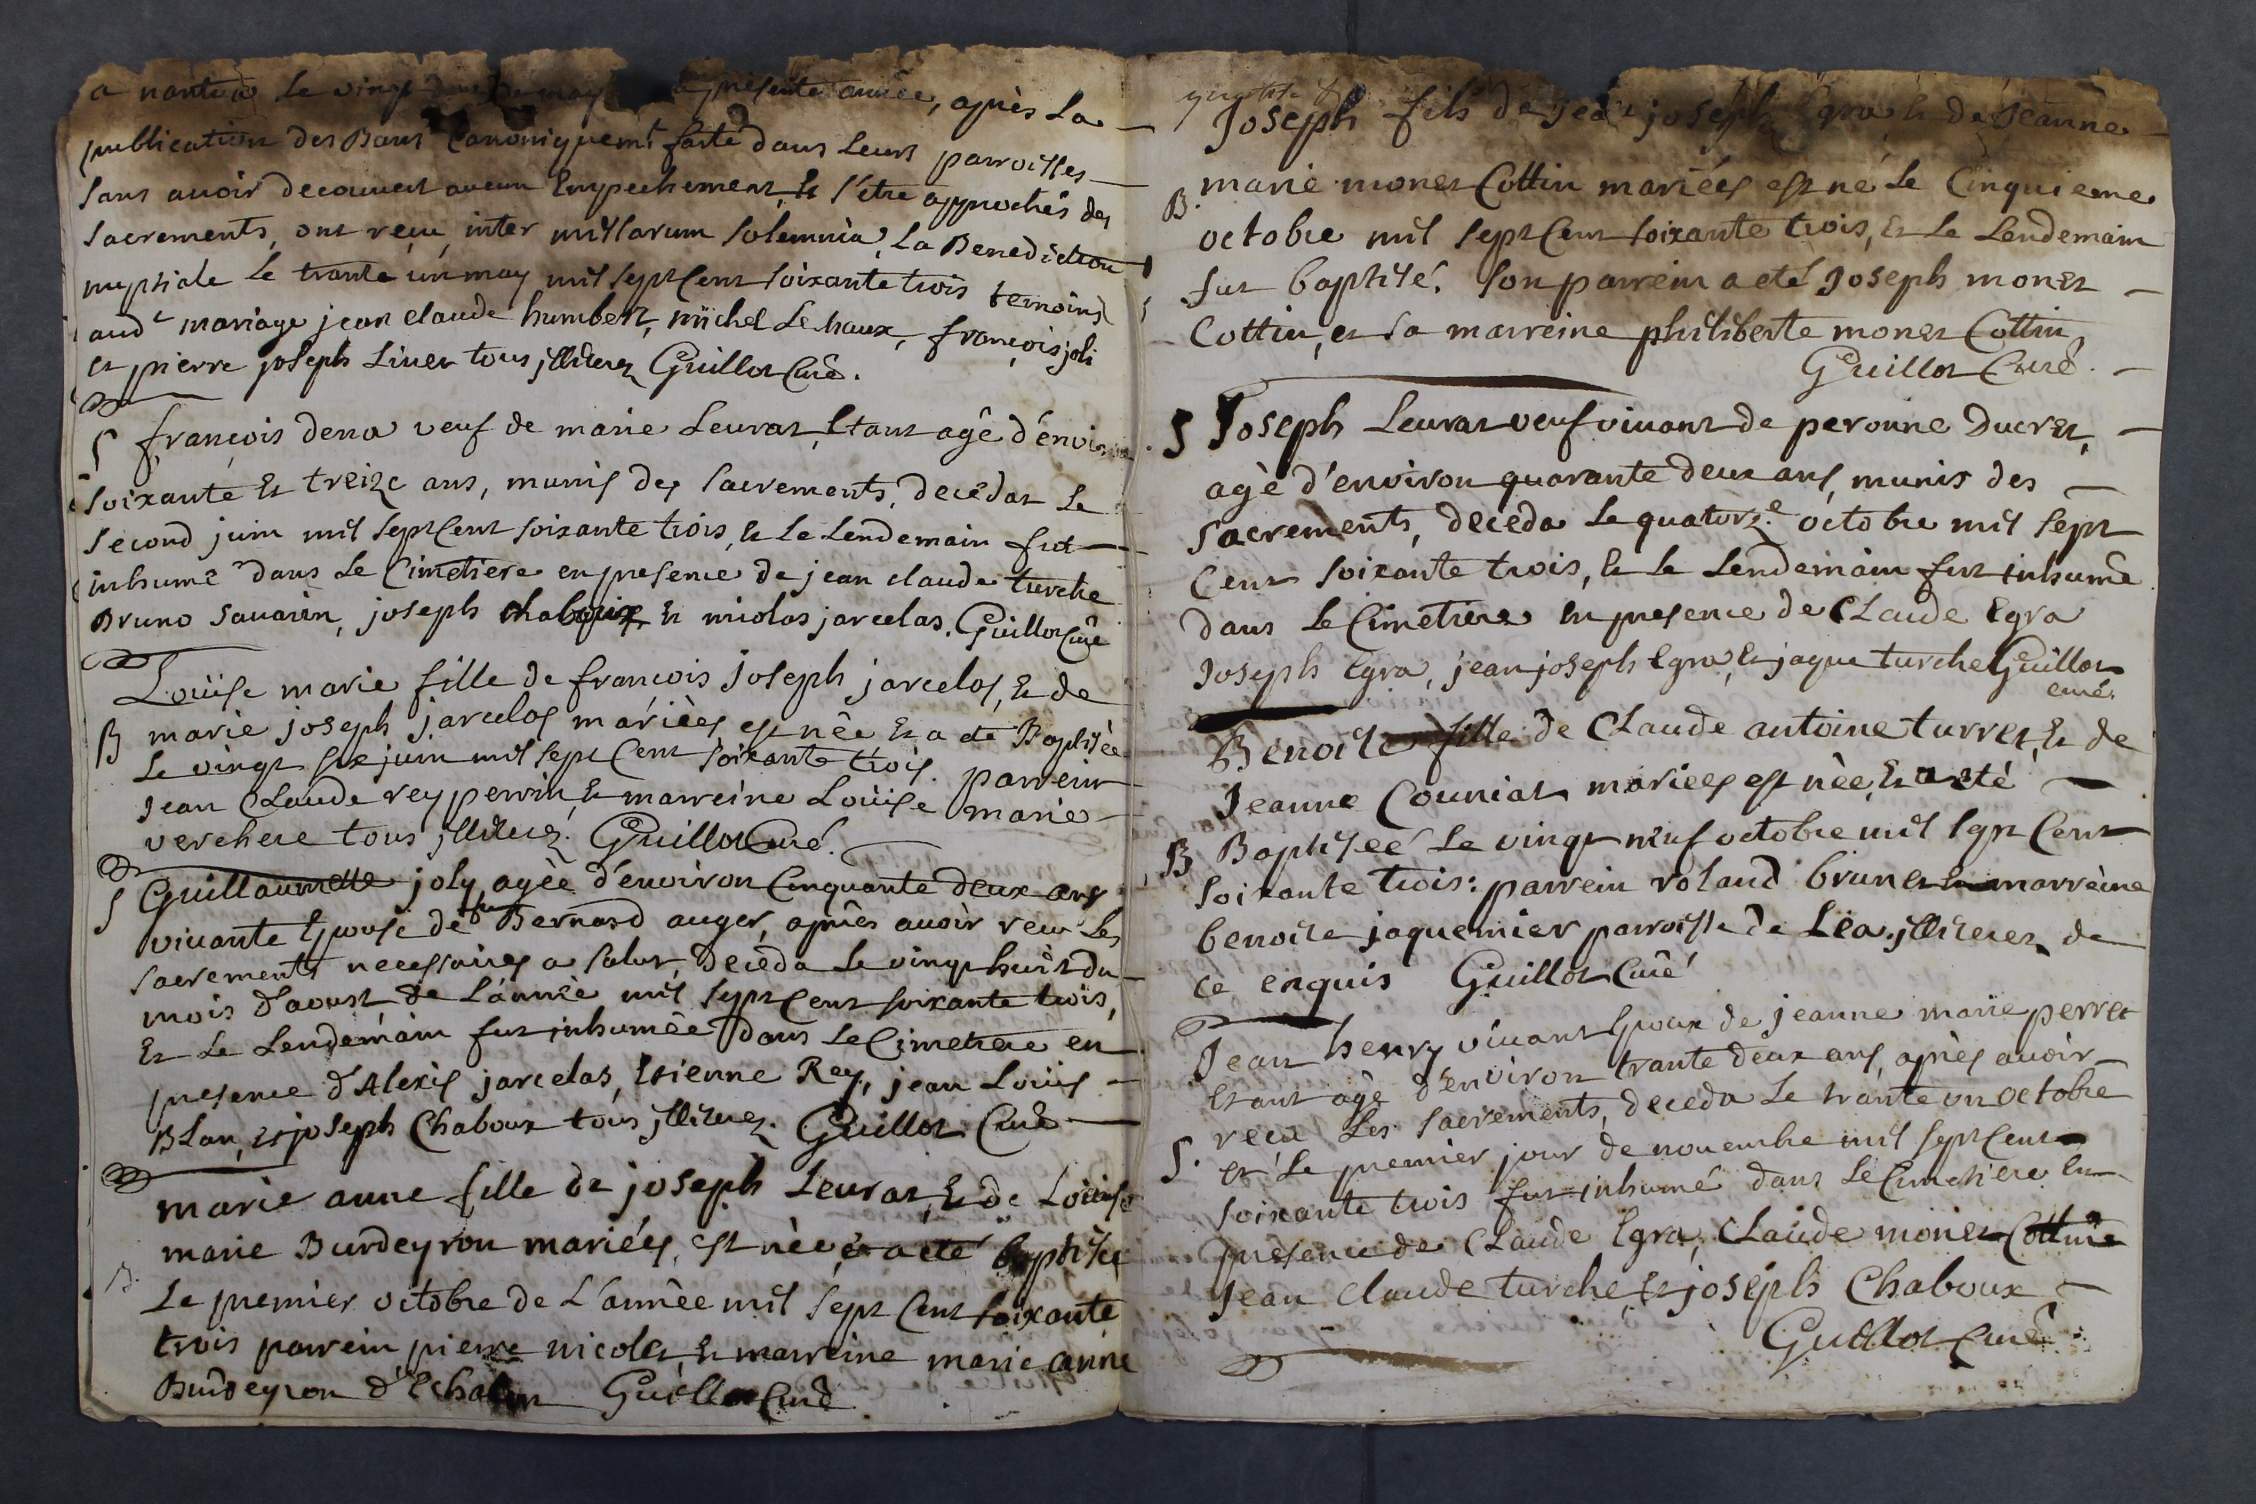 a nantua le vingt de may presente année, après La
publication des Bans Canoniquemt faite dans Leurs parroisses
sans avoir decouvert aucun Empechement, et s'être approchés des
sacrements, ont reçu, inter missarum solemnia, La Benediction
nuptiale Le trante un may mil sept Cent soixante trois temoins
aud.t mariage jean claude humbert, michel Lehaux, françois joli
et pierre joseph Livet tous jlliterez Guillot Curé.
S françois dena veuf de marie Leurat, Etant agê d'environ
soixante Et treize ans, munis des sacrements, decêdat Le
second juin mil sept Cent soixante trois, et Le Lendemain fut
inhumé dans Le Cimetiere en presence de jean claude turche
Bruno Savarin, joseph chaboux Et nicolas jarcelas. Guillot Curé
Loüise marie fille de françois Joseph jarcelos, Et de
B marie joseph jarcelos mariées est née Et a eté Baptisée
Le vingt six juin mil sept Cent soixante trois. parrein
Jean CLaude rey perrin, Et marreine Loüise marie
verchere tous jlliterez. Guillot Curé.
S Guillaumette joly, agèe d'environ Cinquante deux ans
vivante Epouse de fu Bernard auger, après avoir reçu Les
sacrements necessaires a salut, deceda Le vingt huit du
mois d'aoust de L'année mil sept Cent soixante trois,
Et Le Lendemain fut inhumée dans Le Cimetiere en
presence d'Alexis jarcelas, Etienne Rey, jean Loüis
BLan, et joseph Chaboux tous jlliterez. Guillot Curé
marie anne fille de joseph Leurat, Et de Loüise
marie Burdeyron mariées, est née, et a eté baptisée
B. Le premier octobre de L'année mil sept Cent soixante
trois parrein pierre nicolet, Et marreine marie anne
Burdeyron d'Echalon Guillot Curé
Joseph fils de jean joseph Egra Et de Jeanne
marie monet Cottin mariées est né Le Cinquieme
B. octobre mil sept Cent soixante trois, Et Le Lendemain
fut baptisé. son parrein a eté Joseph monet
Cottin, et sa marreine philiberte monet Cottin
Guillot Curé.
S Joseph Leurat veuf vivant de peronne Ducret,
agè d'environ quarante deux ans, munis des
sacrements, deceda Le quatorz.e octobre mil sept
Cent soixante trois, Et Le Lendemain fut inhumé
dans Le Cimetiere En presence de CLaude Egra
Joseph Egra, jean joseph Egra, Et jaque turche Guillot
curé.
Benoite fille de CLaude antoine turret, Et de
Jeanne Couniat mariees est nèe, Et a eté
B Baptiseé Le vingt neuf octobre mil sept Cent
soixante trois: parrein roland brunet Et marrèine
benoite jaquemier parroisse de Lea. jlliterez de
ce enquis Guillot Curé
Jean henry vivant Epoux de jeanne marie perret
Etant agè d'environ trante deux ans, après avoir
reçu Les sacrements, deceda Le trante un octobre
S. et Le premier jour de novembre mil sept Cent
soixante trois fut inhumé dans Le Cimetiere En
presence de CLaude Egra, CLaude monet Cottin
Jean claude turche, Et joseph Chaboux
Guillot Curé